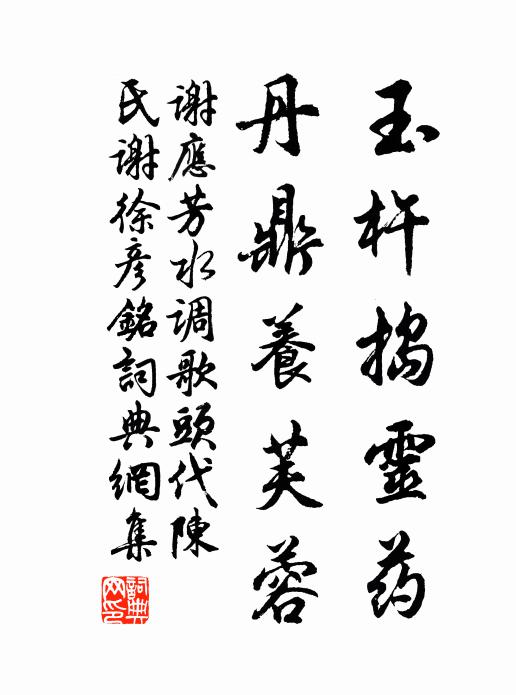 玉杵搗靈药
丹鼎養芙蓉
謝應芳水调歌頭代陳
氏謝徐彦銘詞典網集
詞典
网印